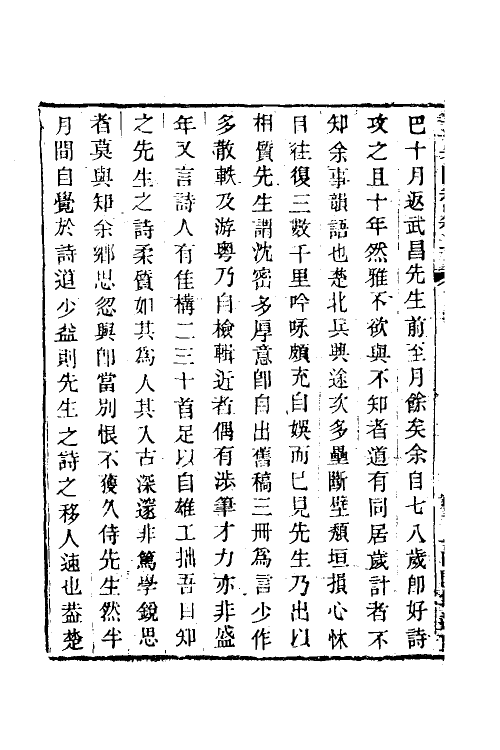 巴十月返武昌先生前至月餘矣余自七八歲卽好詩
攻之且十年然雅不欲與不知者道有同居歲計者不
知余事韻語也楚北兵興途次多壘斷壁頹垣損心怵
目往復三數千里吟咏頗充自娛而已見先生乃出以
相質先生謂沈密多厚意卽自出舊稿三冊爲言少作
多散軼及游粵乃自檢輯近者偶有涉筆才力亦非盛
年又言詩人有佳構二三十首足以自雄工拙吾自知
之先生之詩柔質如其爲人其入古深還非篤學銳思
者莫與知余鄉思忽與卽當別恨不獲久侍先生然半
月間自覺於詩道少益則先生之詩之移人速也葢楚